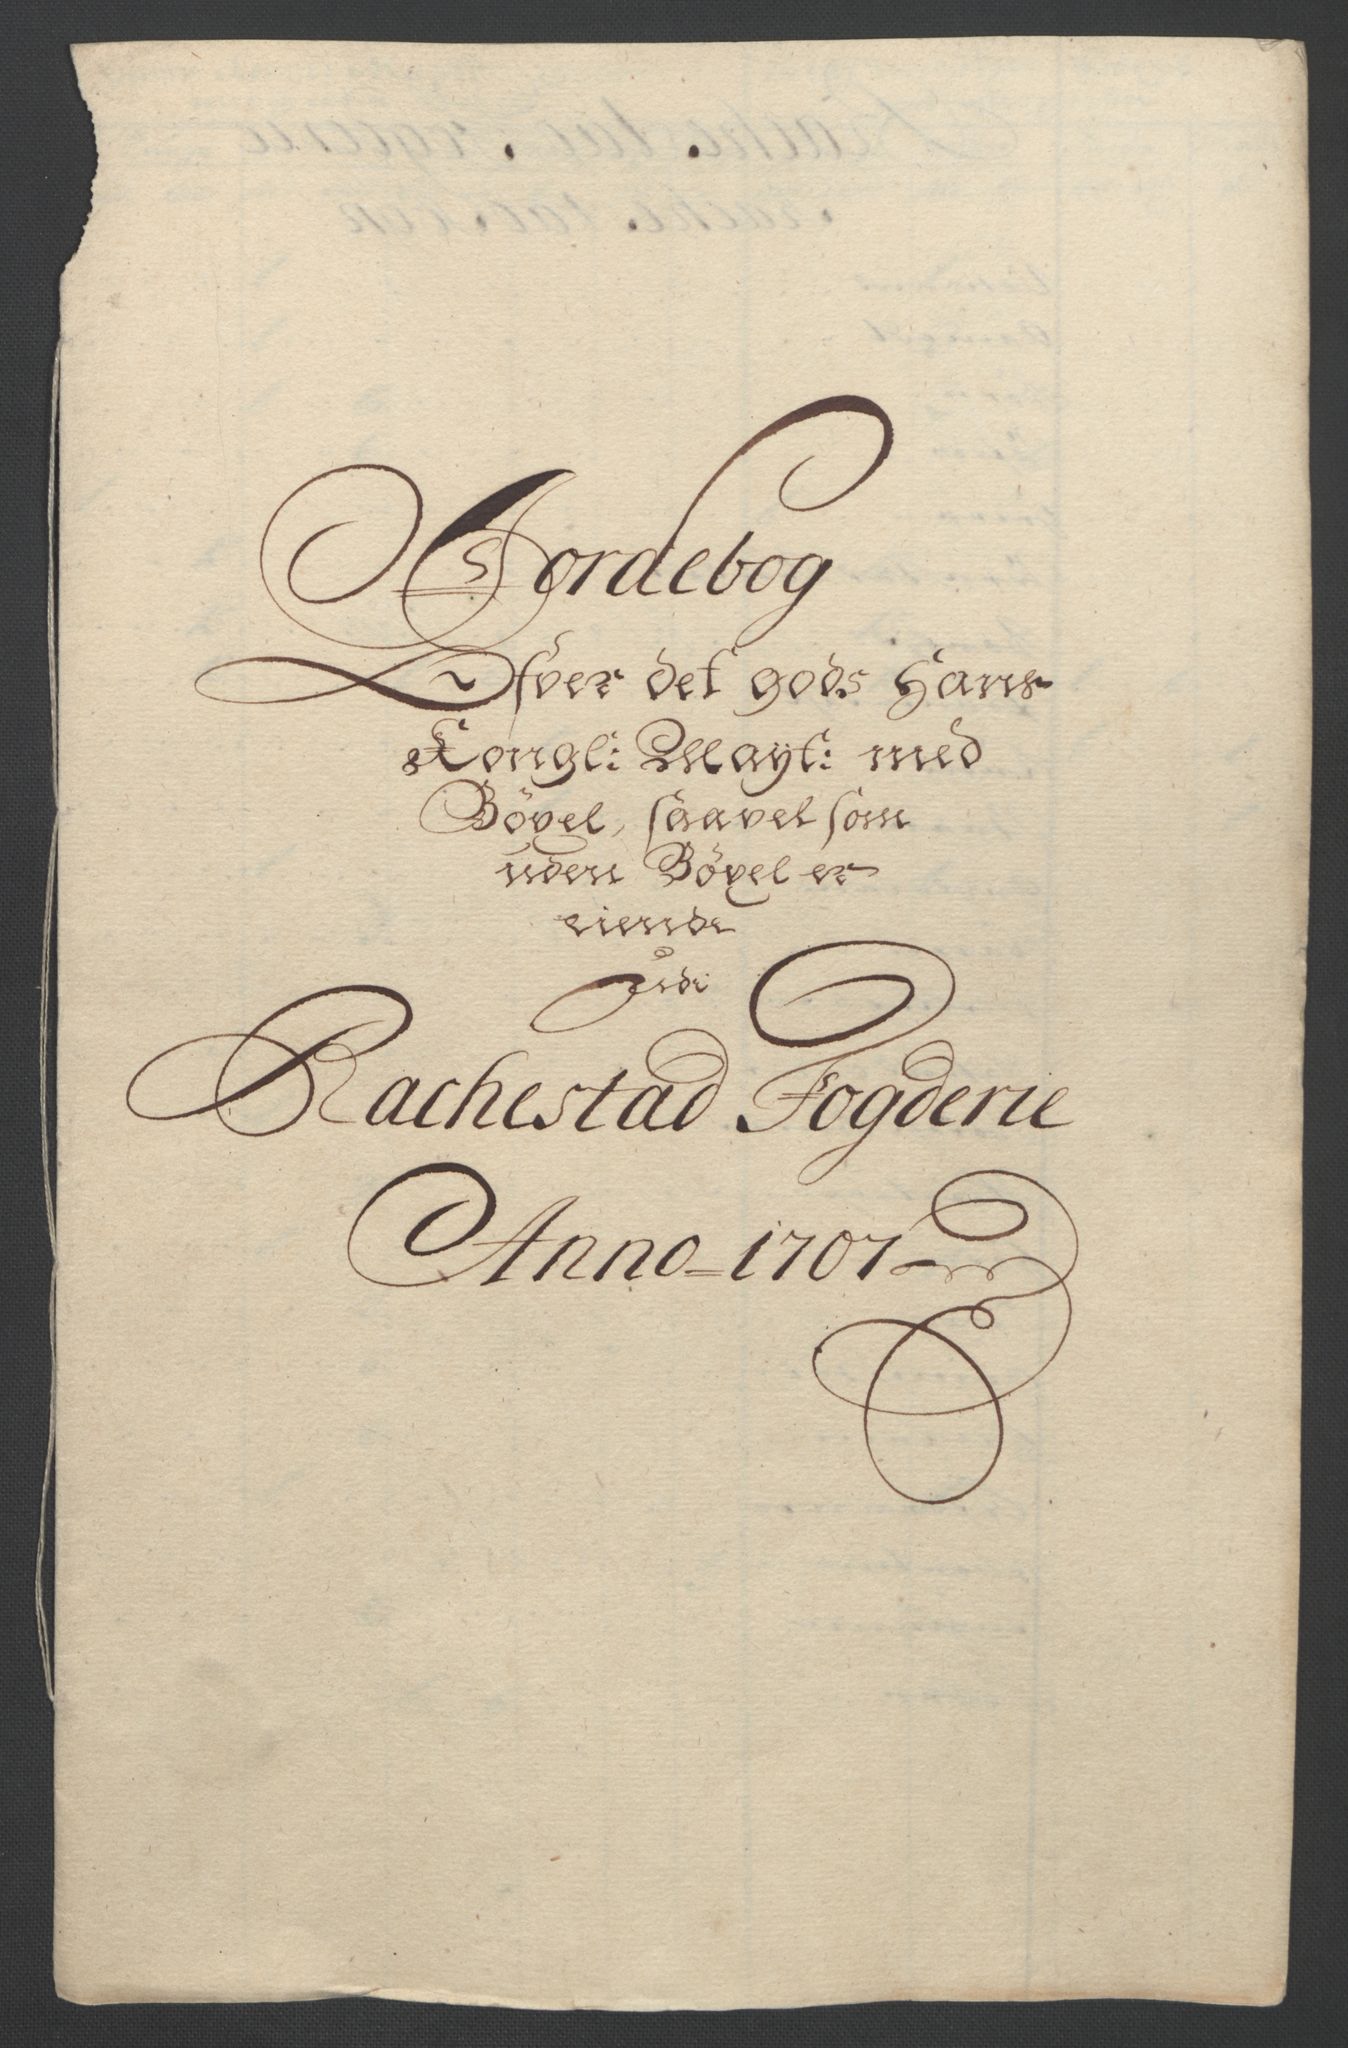 Jordebog
Ofver det gods Hans
Kongl: Mayt: med
Böxel, saavel som
uden Böxel er
eiende
Udi
Rachestad Fogderie
Anno 1707